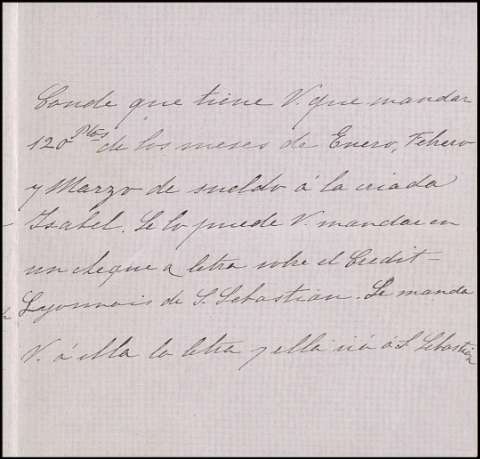 Conde que tiene V. que mandar
120 Ptas de los meses de Enero, Febrero
y Marzo de sueldo á la criada
Isabel. Se lo puede V. mandar en
un cheque a letra sobre el Credit-
Lyonnais de S. Sebastian. Le manda
V. á ella la letra y ella irá á S. Sebastian